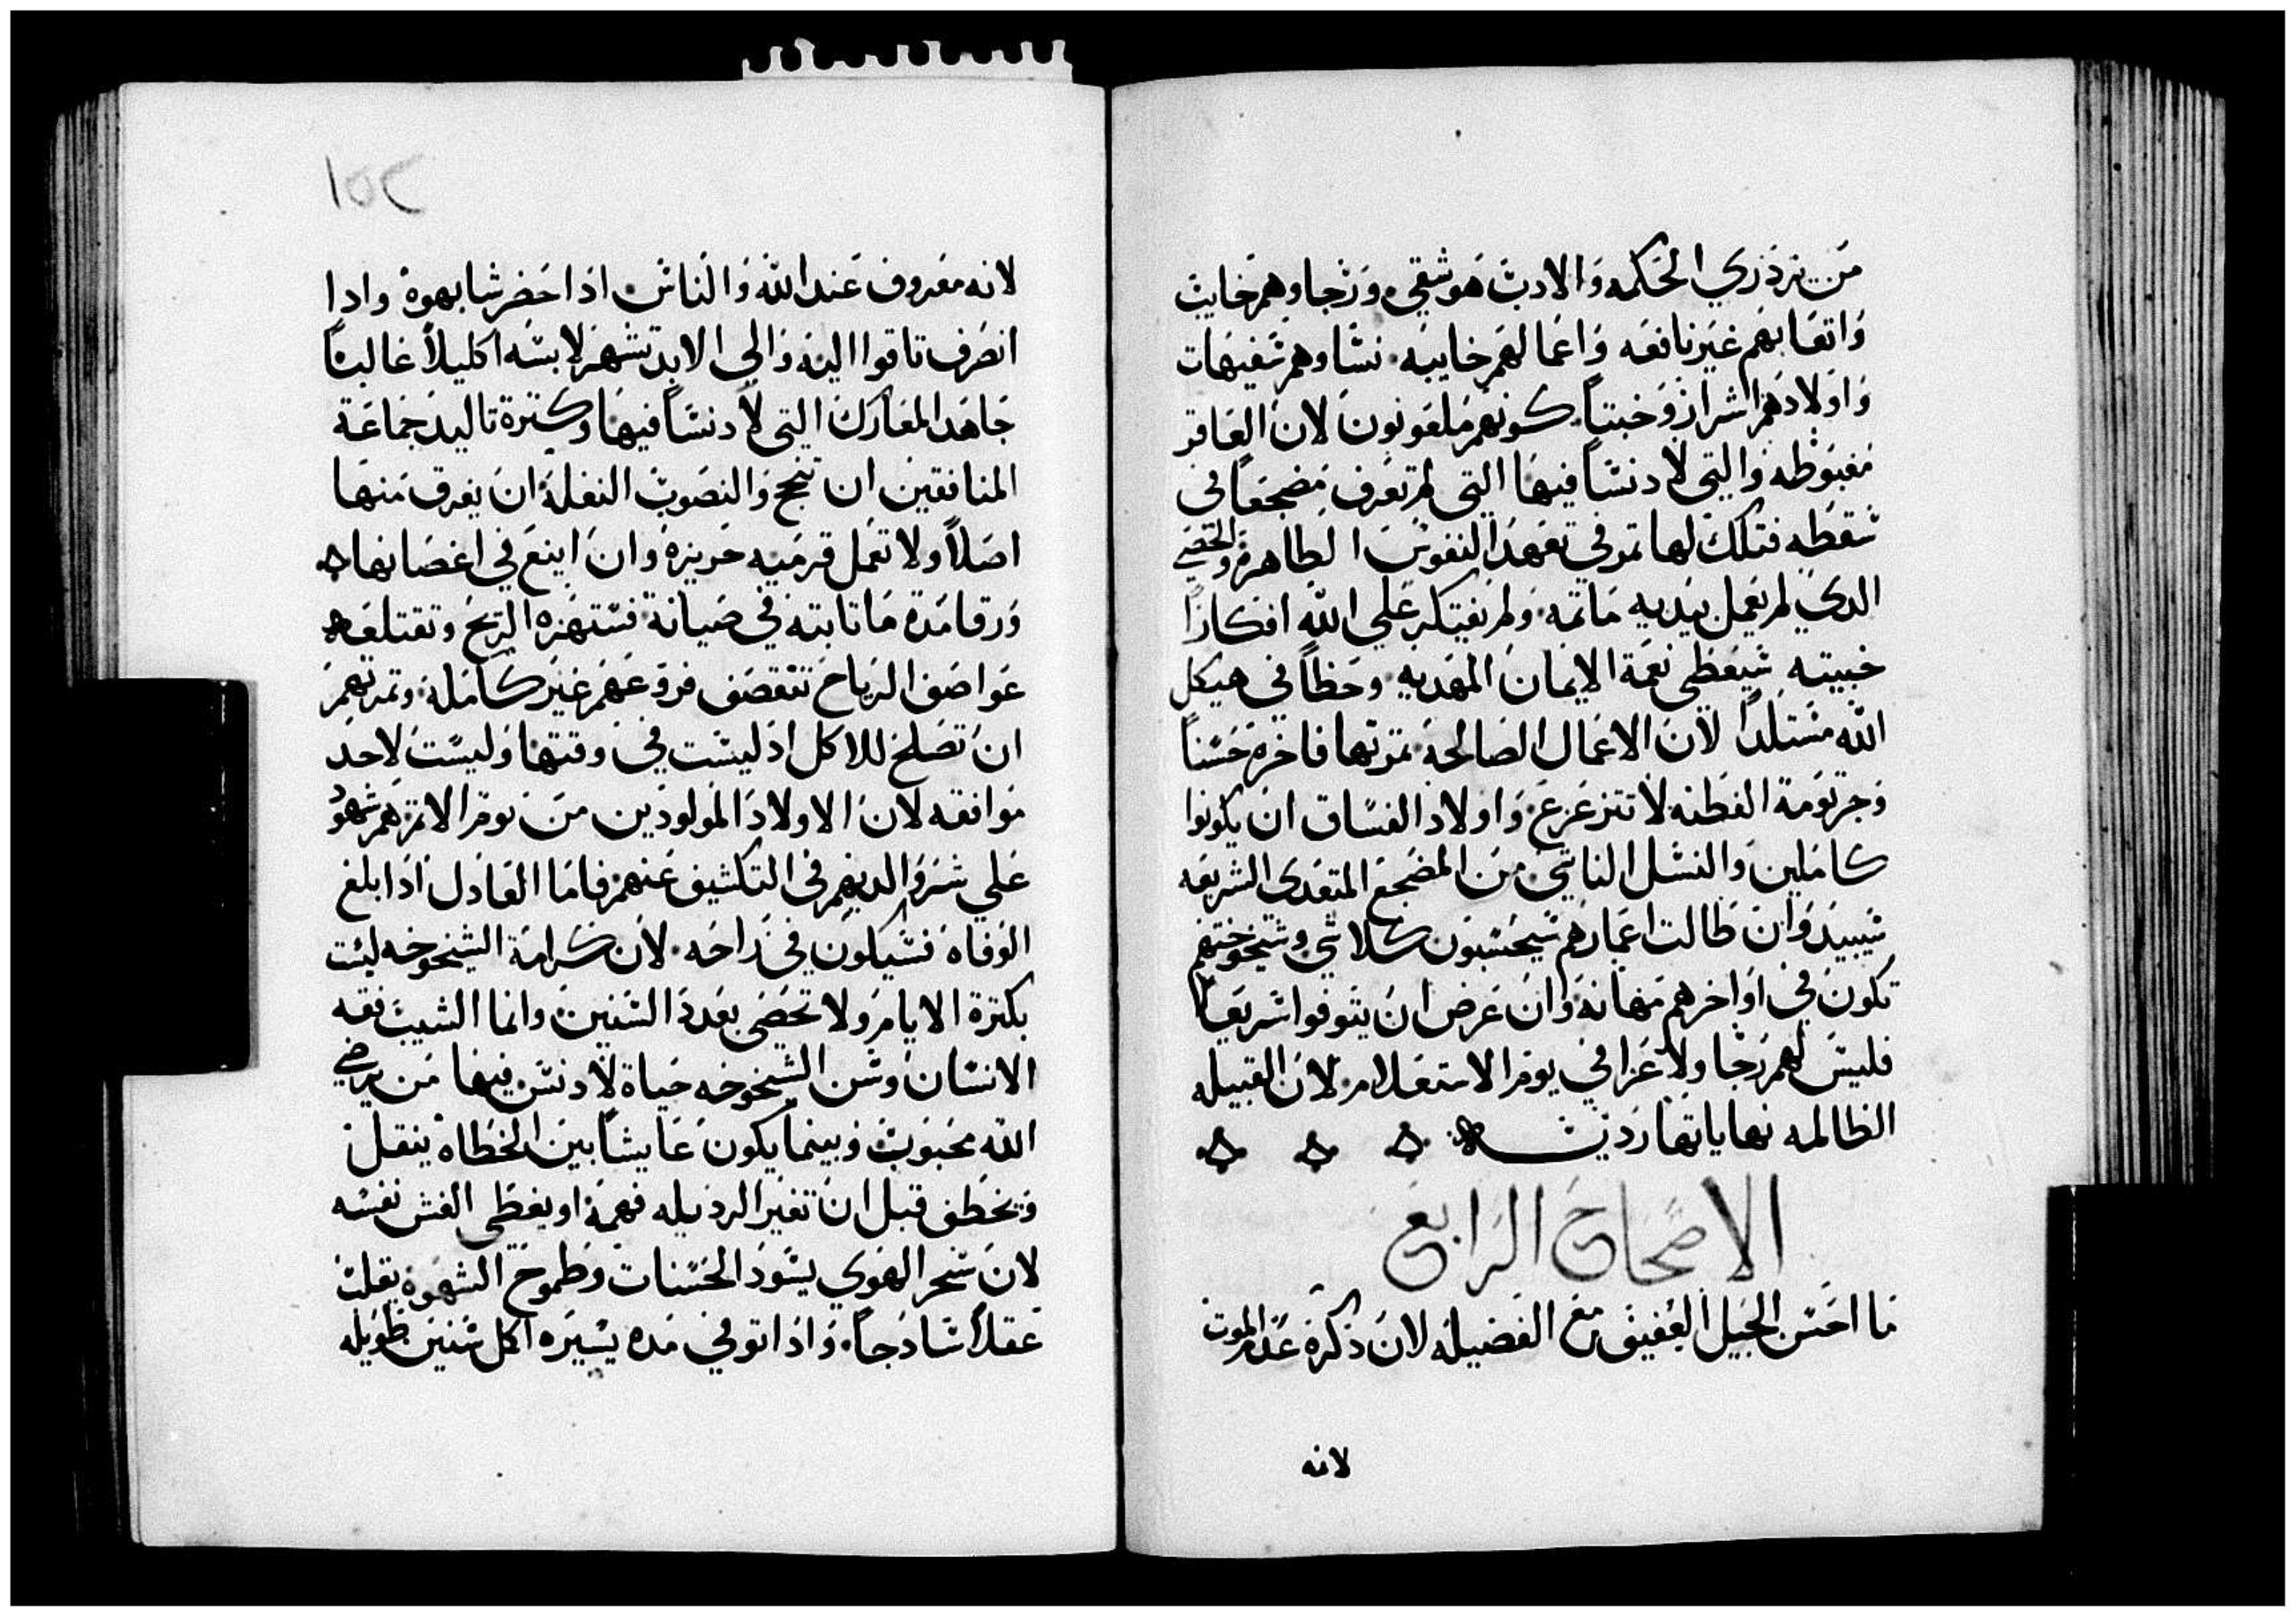 من يزدري الحكمه والادب هو شقي ورجاوهم خايب
واتعابهم غير نافعه واعمالهم خايبه نساوهم سفيهات
واولادهم اشرار وخبتيا كونهم ملعونون لان العاقر
مغبوطه والتي لا دنسا فيها التي لم تعرف مضجعا في
سقطه فتلك لها تمر في تعهد النفوس الطاهره والخصي
الدي لم يعمل بيديه ماتمه ولم يفتكر علي الله افكارا
خبيته سيعطي نعمة الايمان المهديه وحظا في هيكل
الله مستلدا لان الاعمال الصالحه تمرتها فاخره حسنا
وجرتومة الفطنه لا تتزعزع واولاد الفساق ان يكونوا
كاملين والنسل الناشي من المضجع المتعدي الشريعه
سيبيد وان طالت اعمارهم سيحسبون كلاشي وشيخوختهم
تكون في اواخرهم مهانه وان عرض ان يتوفوا سريعا
فليس لهم رجا ولا عزا في يوم الاستعلام لان القبيله
الظالمه نهاياتها رديه
الاصحاح الرابع
ما احسن الجيل العفيف مع الفضيله لان ذكره عدم الموت
لانه
١٥٢
لانه معروف عند الله والناس ادا حضر شابهوه وادا
انصرف تاقوا اليه والي الابد تشهر لابسه اكليلا غالبا
جاهد المعارك التي لا دنسا فيها وكترة تاليد جماعة
المنافقين ان تنجح والنصوب النغله ان يغرق منها
اصلا ولا تعمل قرميه حريزه وان اينع في اغصانها
ورقا مدة ما تابته في صيانة فستهزه الريح وتقتلعه
عواصف الرياح تتقصف فروعهم غير كامله وتمرتهم
ان تصلح للاكل اذ ليست في وقتها وليست لاحد
موافقه لان الاولاد المولودين من نوم الاتم هم شهود
علي شر والديهم في التكشيف عنهم فاما العادل اذا بلغ
الوفاه فسيكون في راحه لان كرامة الشيخوخه ليست
بكترة الايام ولا تحصي بعدد السنين وانما الشيب فقه
الانسان وسن الشيخوخه حياة لا دنس فيها من يرضي
الله محبوب وبينما يكون عايشا بين الخطاه ينقل
ويخطف قبل ان تغير الرذيله فهمه او يغطي الغش نفسه
لان سحر الهوي يسود الحسنات وطموح الشهوه يقلب
عقلا سادجا واذا توفي مده يسيره اكل سنين طويله